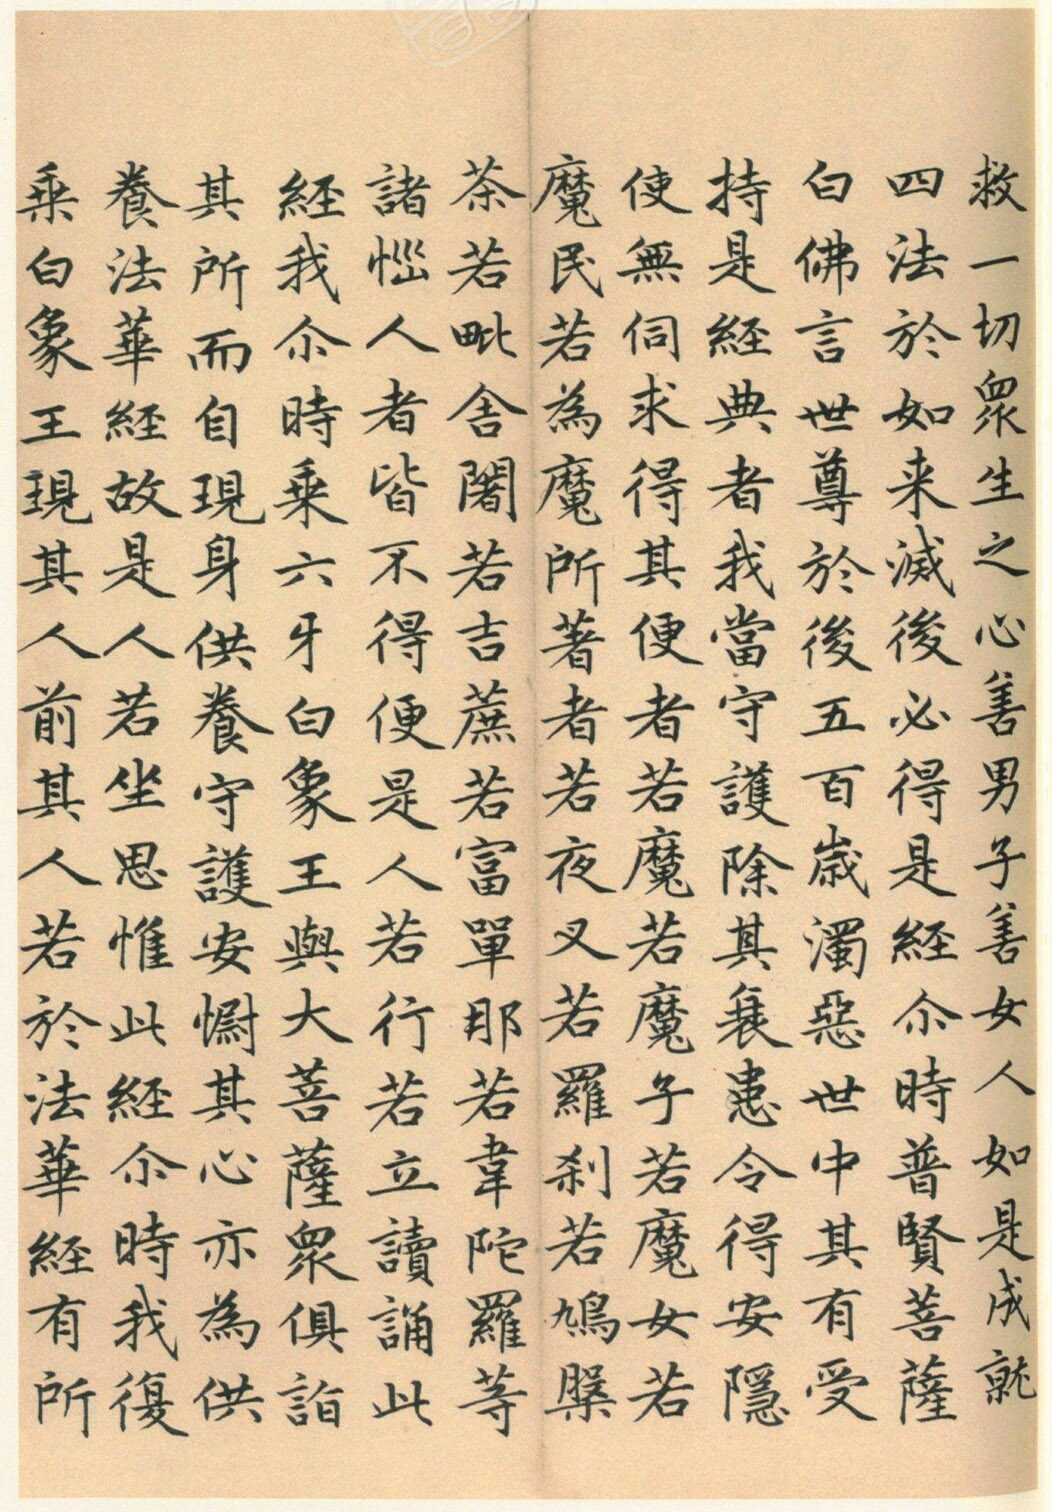 救一切衆生之心善男子善女人如是成就
四法於如来滅後必得是経尒時普賢菩薩
白佛言世尊於後五百歳濁惡世中其有受
持是経典者我當守護除其衰患令得安隱
使無伺求得其便者若魔若魔子若魔女若
魔民若為魔所著者若夜叉若羅刹若鳩槃
茶若毗舎闍若吉蔗若富單那若韋陀羅等
諸惱人者皆不得便是人若行若立讀誦此
経我尒時乗六牙白象王與大菩薩衆俱詣
其所而自現身供養守護安慰其心亦為供
養法華経故是人若坐思惟此経尒時我復
乗白象王現其人前其人若於法華経有所